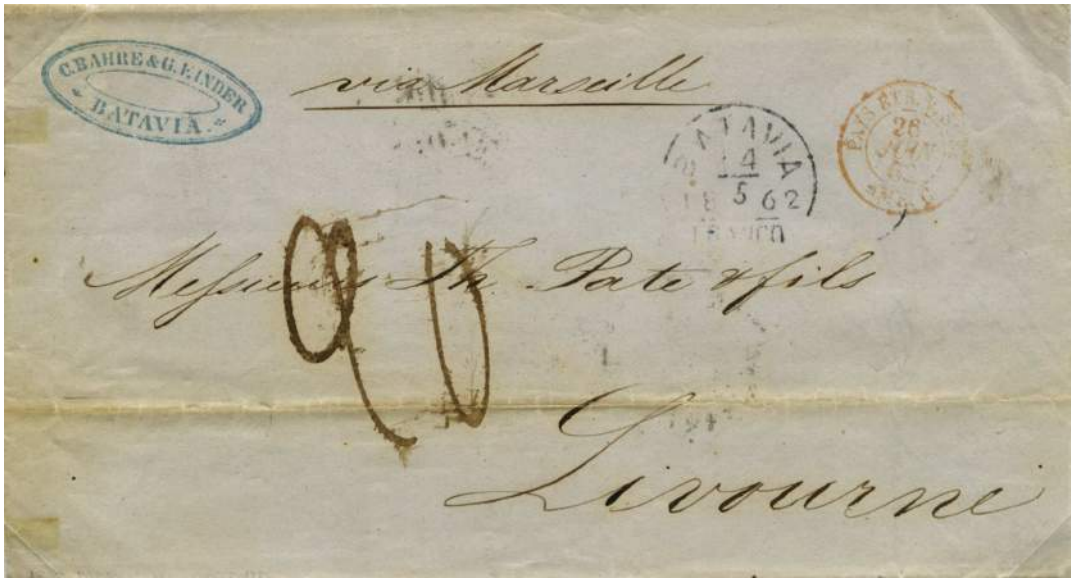 C. BAHRE & G. KINDER
BATAVIA.
via Marseille
BATAVIA
14
5 62
FRANCO
PAYS
26
JUIN
62
90
Messieurs Th. Pate & fils
Livourne